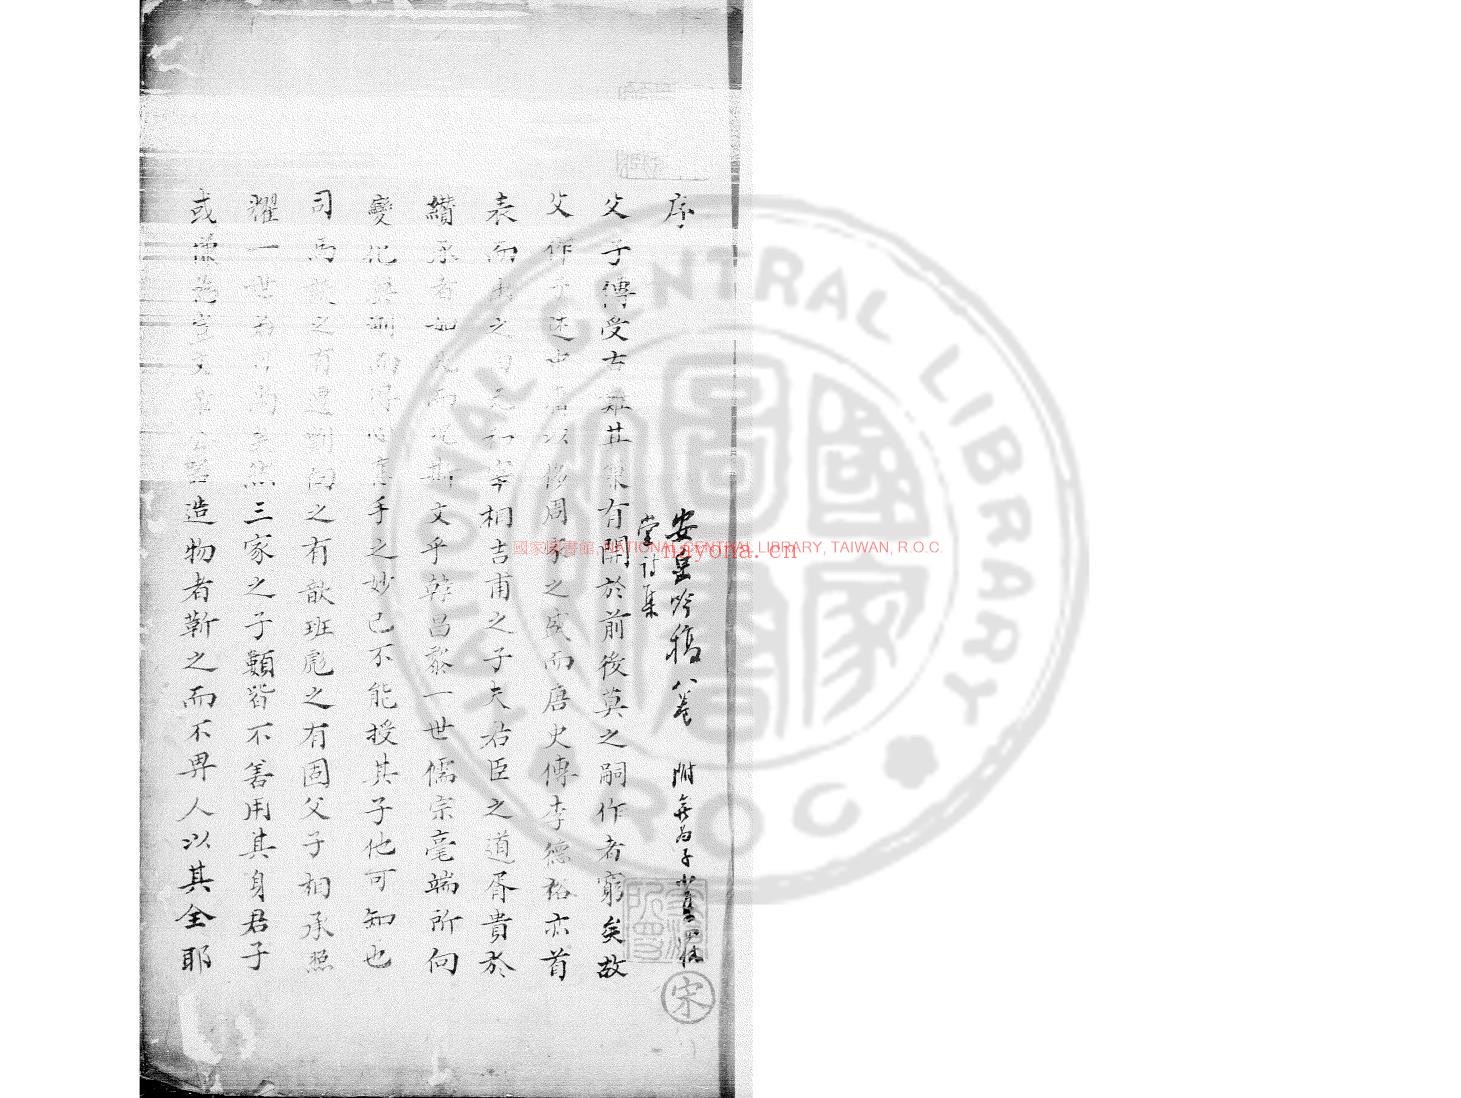 序
安晚吟稿八卷 附 小集四種
堂詩集
父子傳受古難其繼有開於前後莫之嗣作者窮矣故
父作子述中庸以侈周家之盛而唐史傳李德裕亦首
表而出之曰元和宰相吉甫之子夫君臣之道胥貴於
纘承者如此而况斯文乎韓昌黎一世儒宗毫端所向
變化莫測而得心應手之妙已不能授其子他可知也
司馬談之有遷劉向之有歆班彪之有固父子相承照
耀一世為可尚矣然三家之子類皆不善用其身君子
或慊焉豈文章公器造物者靳之而不畀人以其全耶
宋
國家圖書館, NATIONAL CENTRAL LIBRARY, TAIWAN, R.O.C.
nayona.cn
NATIONAL CENTRAL LIBRARY
R O C